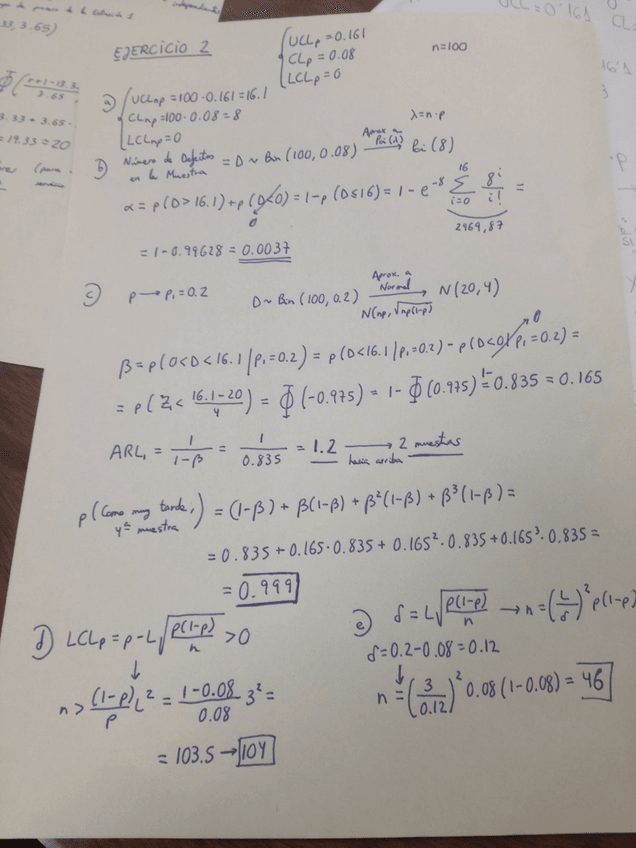 independient
33, 3.65)
EJERCICIO 2
UCLp = 0.161
CLp = 0.08
LCLp = 0
n=100
a) UCLnp = 100·0.161 = 16.1
CLnp = 100·0.08 = 8
LCLnp = 0
λ=n·p
b) Número de Defectos en la Muestra = D ~ Bin (100, 0.08) Aprox. a Poi(λ) → Poi (8)
α = p(D > 16.1) + p(D<0) 0 = 1-p(D≤16) = 1 - e^-8 Σ i=0 16 8^i / i! =
2969,87
= 1 - 0.99628 = 0.0037
c) p → p₁ = 0.2 D ~ Bin (100, 0.2) Aprox. a Normal → N(np, √np(1-p)) N(20, 4)
β = p(0<D<16.1 | p₁=0.2) = p(D<16.1 | p₁=0.2) - p(D<0 | p₁=0.2) 0 =
= p(Z < (16.1-20)/4) = Φ(-0.975) = 1 - Φ(0.975) = 1-0.835 = 0.165
ARL₁ = 1/(1-β) = 1/0.835 = 1.2 → hacia arriba 2 muestras
p(Como muy tarde, 4ª muestra) = (1-β) + β(1-β) + β²(1-β) + β³(1-β) =
= 0.835 + 0.165·0.835 + 0.165²·0.835 + 0.165³·0.835 =
= 0.999
d) LCLp = p - L√(p(1-p)/n) > 0
↓
n > (1-p)/p L² = (1-0.08)/0.08 3² =
= 103.5 → 104
e) δ = L√(p(1-p)/n) → n = (L/δ)² p(1-p)
δ = 0.2 - 0.08 = 0.12
↓
n = (3/0.12)² 0.08 (1-0.08) = 46
3.33 + 3.65 ·
= 19.33 = 20
UCL = 0'161
CL=
16'1